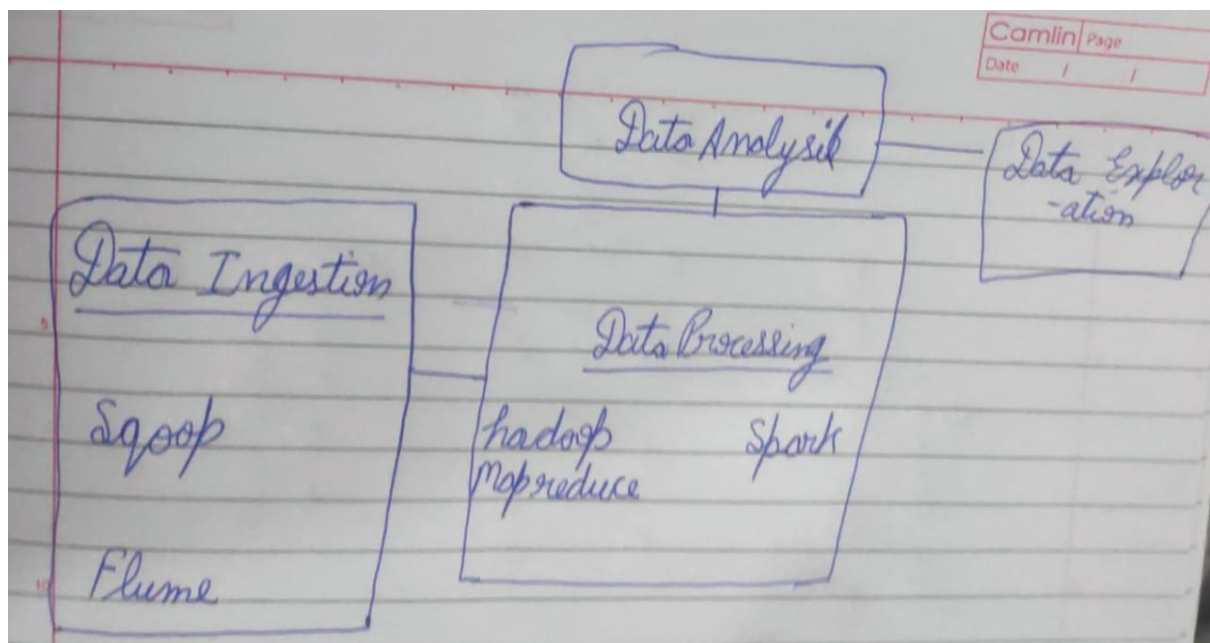 Camlin Page
Date / /
Data Analysis
Data Explor
-ation
Data Ingestion
Sqoop
Flume
Data Processing
hadoop Spark
Mapreduce
5
10